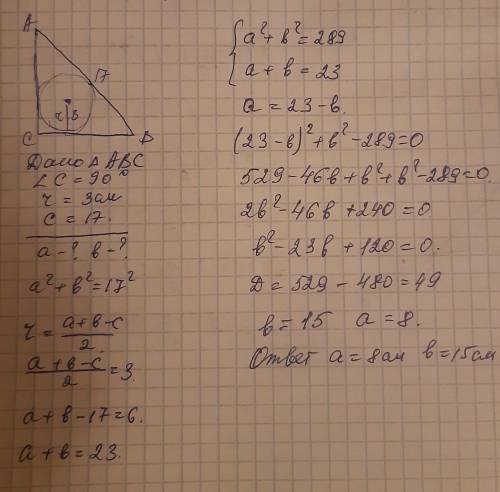 A
17
r
3
C
B
Дано Δ ABC
∠C = 90°
r = 3см
c = 17.
a - ? в - ?
a² + в² = 17²
r = (a + в - c)/2
(a + в - c)/2 = 3.
a + в - 17 = 6.
a + в = 23.
{ a² + в² = 289
a + в = 23
a = 23 - в.
(23 - в)² + в² - 289 = 0
529 - 46в + в² + в² - 289 = 0.
2в² - 46в + 240 = 0.
в² - 23в + 120 = 0.
D = 529 - 480 = 49
в = 15 a = 8.
Ответ a = 8см в = 15см